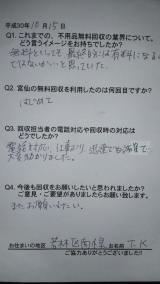 平成30年10月15日
Q1. これまでの、不用品無料回収の業界について、
どう言うイメージをお持ちでしたか?
無料といっても最終的には有料になる
ではないかと思っていた。
Q2. 当仙の無料回収を利用したのは何回目ですか?
はじめて
Q3. 回収担当者の電話対応や回収時の対応は
どうでしたか?
電話対応、仕事ぶり、迅速で
大変助かりました。
Q4. 今後も回収をお願いしたいと思われましたか?
ご意見・ご要望がありましたらお願い致します。
またお願いしたい。
お住まいの地区 若林区 お名前 T.K
ご協力ありがとうございました!!